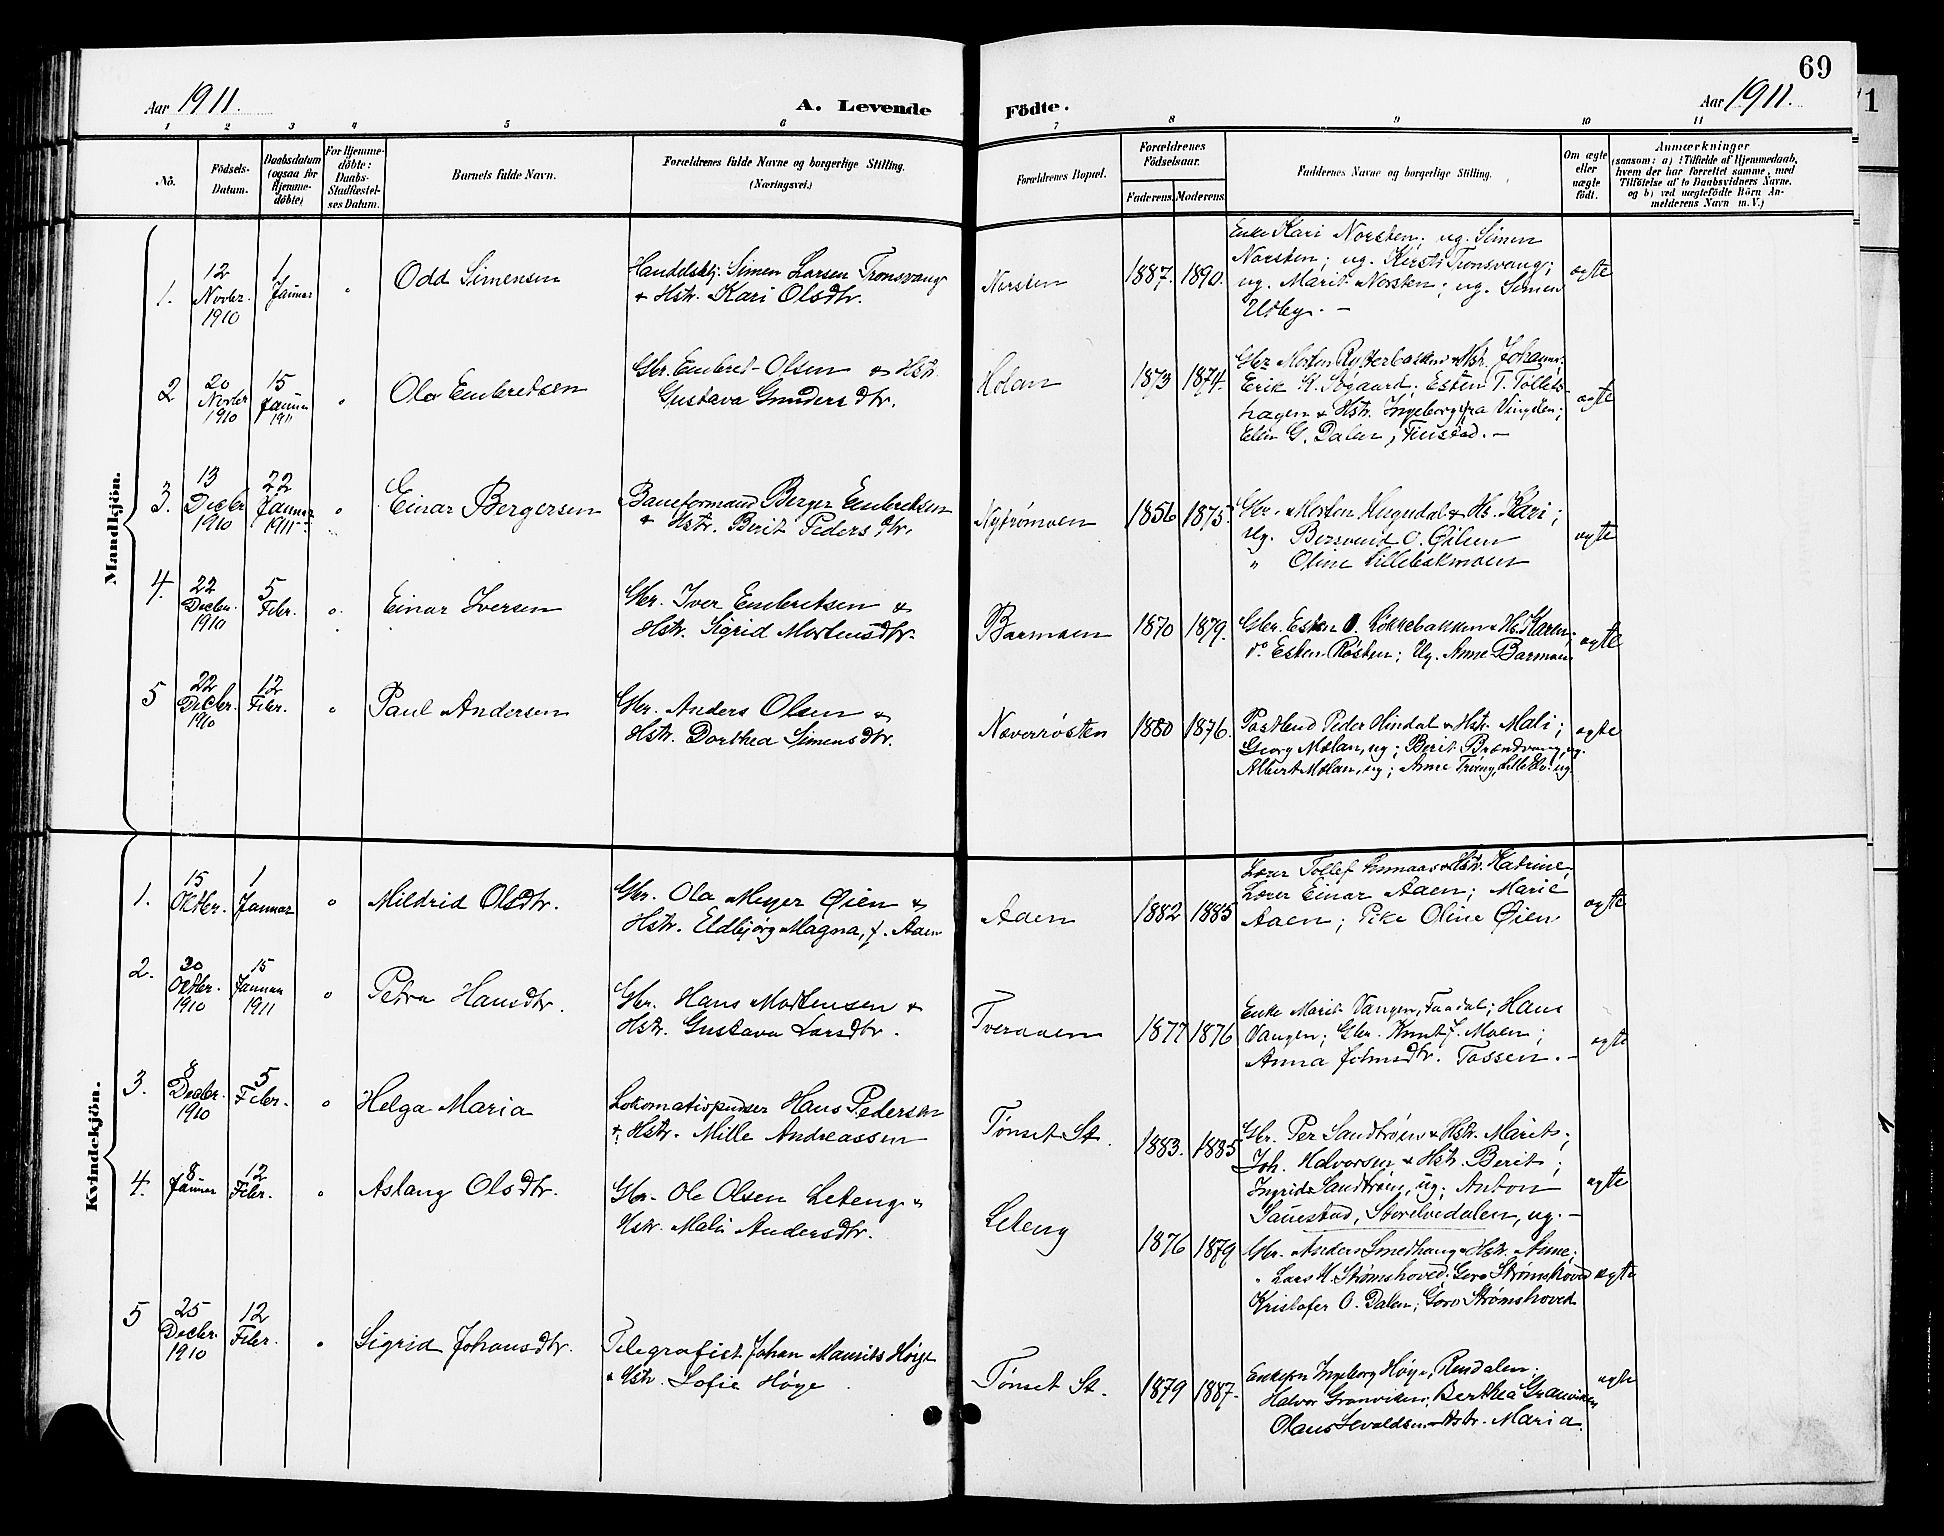 69
Aar 1911.
A. Levende
Födte.
Aar 1911.
1 2 3 4 5 6 7 8 9 10 11
No.
Födsels-
Datum.
Daabsdatum
(ogsaa för
Hjemme-
döbte)
For Hjemme-
döbte:
Daabs-
Stadfæstel-
ses Datum.
Barnets fulde Navn.
Forældrenes fulde Navne og borgerlige Stilling.
(Næringsvei.)
Forældrenes Bopæl.
Forældrenes
Födselsaar.
Faderens. Moderens.
Faddernes Navne og borgerlige Stilling.
Om ægte
eller
uægte
födt.
Anmærkninger
(saasom: a) i Tilfælde af Hjemmedaab,
hvem der har forrettet samme, med
Tilföielse af to Daabsvidners Navne,
og b) ved uægtefödte Börn An-
melderens Navn m. V.)
Mandkjön.
1.
12
Novbr.
1910
1
Januar
Odd Simensen
Handelsbtj. Simen Larsen Tronsvang
& Hstr. Kari Olsdtr.
Norsten
1887. 1890.
Enke Kari Norsten; ug. Simen
Norsten; ug. Kersti Tronsvang;
ug. Marit Norsten; ug. Simen
Utby. -
ægte
2
20
Novbr
1910
15
Januar
1911
Ola Embretsen
Gbr. Embret Olsen & Hstr.
Gustava Gundersdtr.
Holan
1873 1874.
Gbr Morten Rytterbakken & Hstr. Johanne;
Erik K. Søgaard; Esten T. Tollefs-
hagen & Hstr. Ingeborg fra Vingelen;
Elin G. Dalen, Finstad. -
ægte
3.
13
Decbr
1910
22
Januar
1911
Einar Bergersen
Baneformand Berger Embretsen
& Hstr. Berit Pedersdtr.
Nystrømoen
1856 1875.
Gbr. Morten & Hs. Kari;
Ug. O. Øien
" Oline Lillebakmoen
ægte
4.
22
Decbr.
1910
5
Febr.
Einar Iversen
Gbr. Iver Embretsen &
Hstr. Sigrid Mortensdtr.
Barmoen
1870 1879.
Gbr. Esten O. Løkkebakken & Hs. Karen;
do Esten Røsten; Ug. Anne Barmoen
ægte
5
22
Decbr.
1910
12
Febr.
Paul Andersen
Gbr. Anders Olsen &
Hstr. Dorthea Simensdtr.
Næverrøsten
1880 1876.
Postbud Peder Hindal & Hstr. Mali;
Georg Mælan, ug; Berit Brændvang, ug.
Albert Mælan, ug; Anne Trøeng, Lille Elv. ug.
ægte
Kvindekjön.
1.
15
Oktbr.
1
Januar
Mildrid Olsdtr.
Gbr. Ola Meyer Øien &
Hstr. Eldbjørg Magna, f. Aaen
Aaen
1882 1885
Lærer Tollef & Hstr. Katrine,
Lærer Einar Aaen; Marie
Aaen; Pike Oline Øien
ægte
2.
30
Oktbr.
1910
15
Januar
1911
Petra Hansdtr.
Gbr. Hans Mortensen &
Hstr. Gustava Larsdtr.
Tveraaen
1877 1876
Enke Marit Vangen, Faadal; Hans
Vangen; Gbr. Knut J. Moen;
Anna Johnsdtr. Tossen. -
ægte
3.
8
Decbr.
1910
5
Febr.
Helga Maria
Lokomotivpudser Hans Pedersen
& Hstr. Mille Andreassen
Tønset St.
1883. 1885
Gbr. Per Sandtrøen & Hstr. Marit;
Joh. Halvorsen & Hstr. Berit;
Ingrid Sandtrøen, ug; Anton
Sauestad, Storelvedalen, ug. -
ægte
4.
8
Januar
12
Febr.
Aslaug Olsdtr.
Gbr. Ole Olsen Leteng &
Hstr. Mali Andersdtr.
Leteng
1876 1879
Gbr. Anders Smedhaug & Hstr. Anne;
" Lars H. Strømshoved; Gero Strømshoved
Kristofer O. Dalen; Goro Strømshoved
ægte
5
25
Decbr.
1910
12
Febr.
Sigrid Johansdtr.
Telegrafist Johan Maurits Høye
& Hstr. Sofie Høye
Tønset St.
1879 1887.
Enkefru Ingeborg Høye, Rendalen.
Halvor Granviken; Berthea Granviken
Olaus Sevaldsen & Hstr. Maria.
ægte